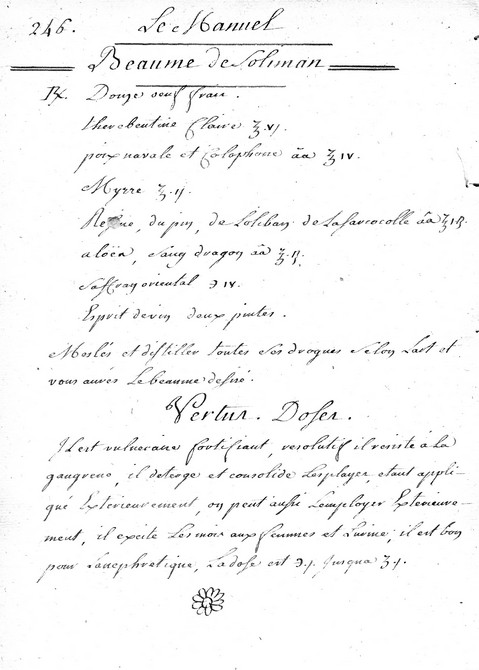 246. Le Manuel
Beaume de Soliman
℞. Douze œuf frais.
therebentine Claire ℥ vj.
poix navale et Colophone āā ℥ iv.
Myrre ℥ ij.
Resine, du pin, de Loliban de La Sarcocolle āā ℥ iß.
aloën, Sang dragon āā ℥ ij.
Saffran oriental ℈ iv.
Esprit de vin deux pintes.
Meslés et distiller toutes Ses drogues Selon Lart et
vous aurés Le beaume desiré.
Vertus. Doses.
Il est vulneraire fortifiant, resolutif il resiste à La
gangrene, il deterge et consolide Les playes, etant appli-
qué Exterieurement, on peut aussi Lemployer Exterieure-
ment, il excite Les mois aux femmes et Lurine; il est bon
pour La nephretique, La dose est ℈ j. jusqua ʒ j.